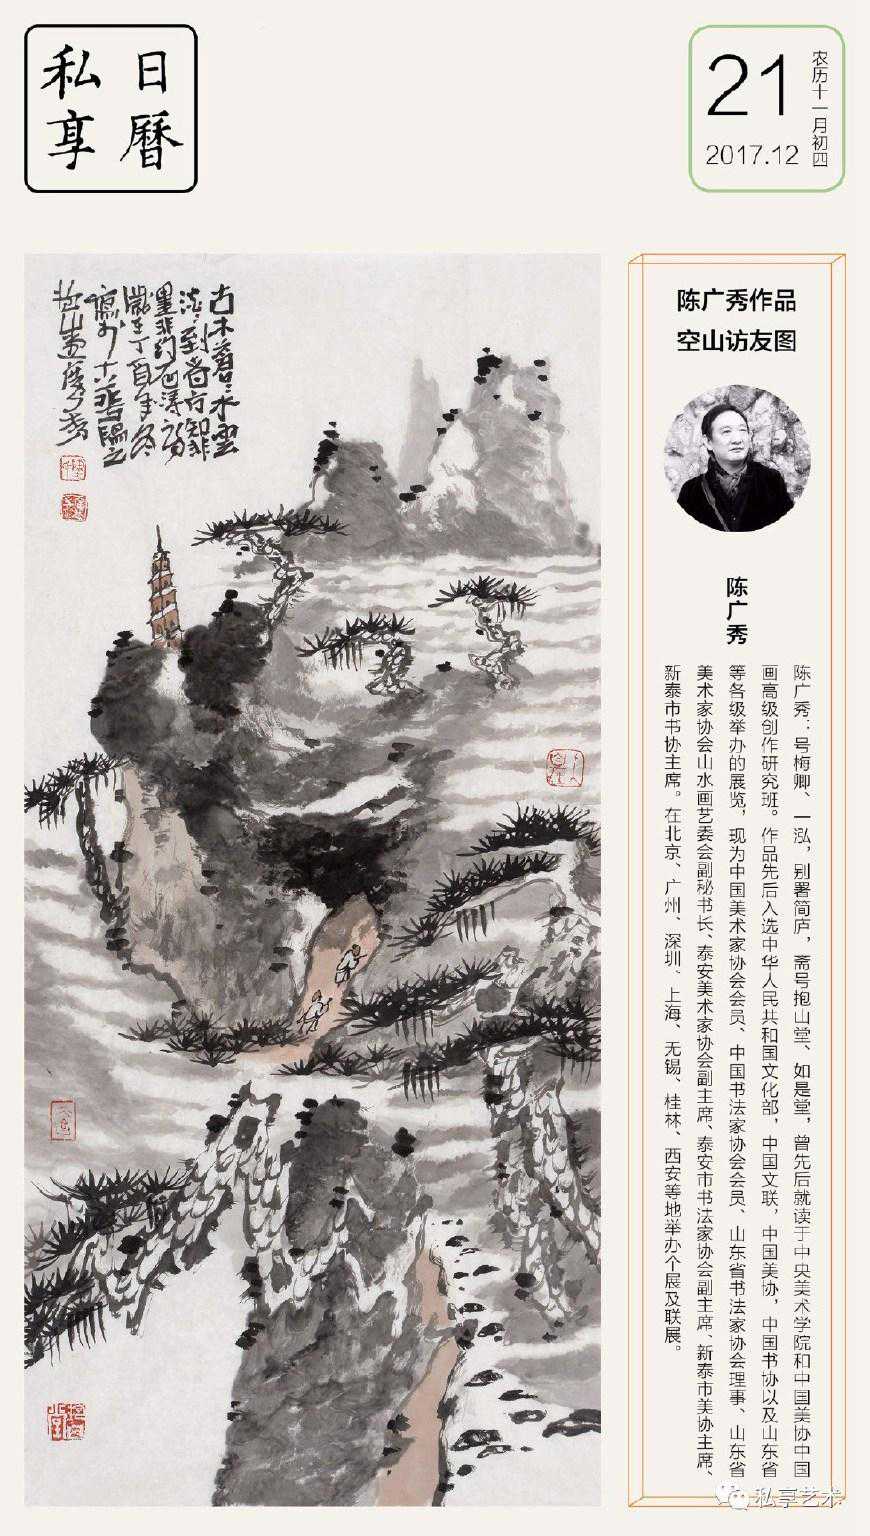 日曆
私享
21
2017.12
农历十一月初四
陈广秀作品
空山访友图
陈广秀
陈广秀：号梅卿、一泓，别署简庐，斋号抱山堂、如是堂，曾先后就读于中央美术学院和中国美协中国
画高级创作研究班。作品先后入选中华人民共和国文化部，中国文联，中国美协，中国书协以及山东省
等各级举办的展览，现为中国美术家协会会员、中国书法家协会会员、山东省书法家协会理事、山东省
美术家协会山水画艺委会副秘书长、泰安美术家协会副主席、泰安市书法家协会副主席、新泰市美协主席、
新泰市书协主席。在北京、广州、深圳、上海、无锡、桂林、西安等地举办个展及联展。
私享艺术